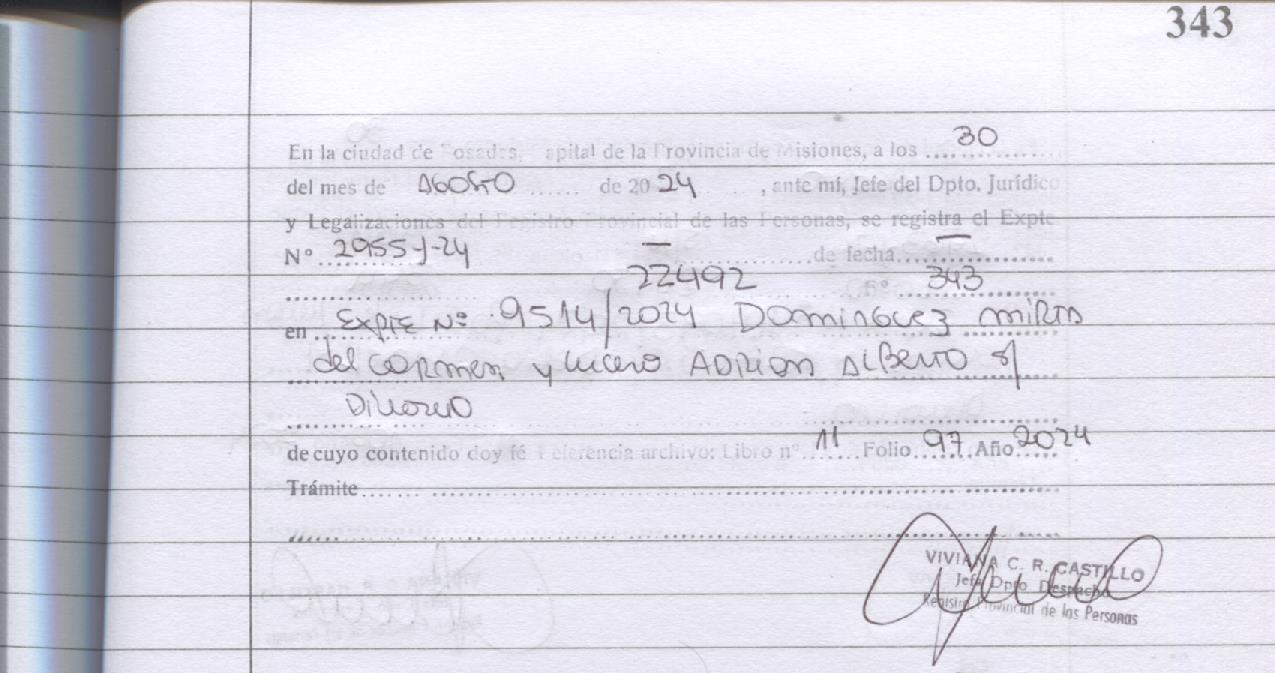 343
En la ciudad de Posadas, Capital de la Provincia de Misiones, a los 30
del mes de AGOSTO de 2024, ante mi, Jefe del Dpto. Jurídico
y Legalizaciones del Registro Provincial de las Personas, se registra el Expte
N° 2955-J-24 — de fecha —
22492 F° 343
en EXPTE Nº 9514/2024 Dominguez mirta
del carmen y Lucero ADRIAN ALBERTO s/
Divorcio
de cuyo contenido doy fé Referencia archivo: Libro n° 11 Folio 97 Año 2024
Trámite
VIVIANA C. R. CASTILLO
Jefa Dpto Despacho
Registro Provincial de las Personas